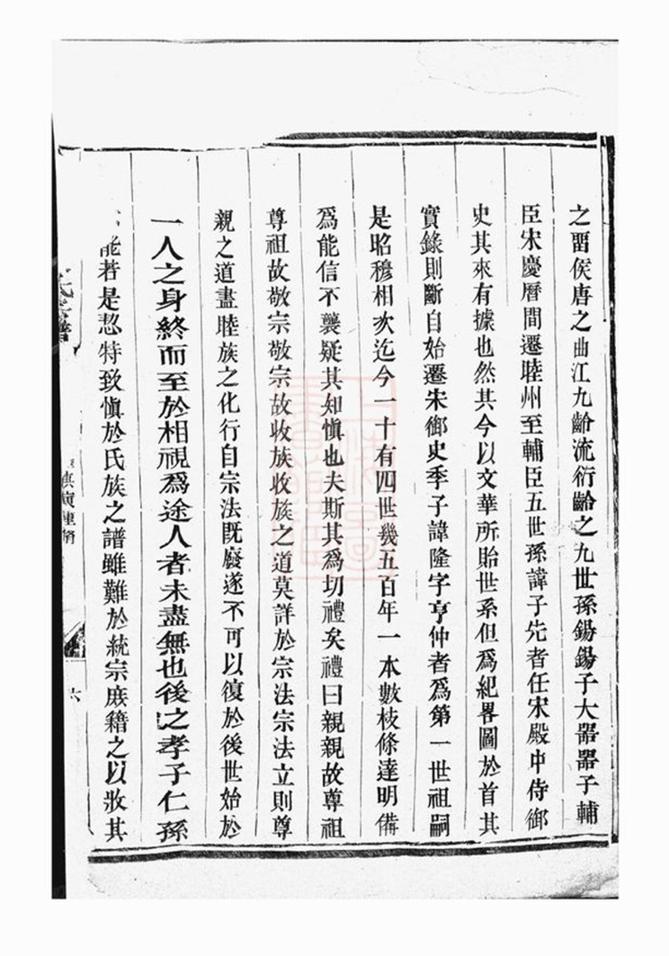 之畱侯唐之曲江九齡流衍齡之九世孫錫錫子大器器子輔
臣宋慶曆間遷睦州至輔臣五世孫諱子先者任宋殿中侍御
史其來有據也然其今以文華所貽世系但爲紀畧圖於首其
實錄則斷自始遷朱御史季子諱隆字亨仲者爲第一世祖嗣
是昭穆相次迄今一十有四世幾五百年一本數枝條達明備
爲能信不襲疑其知愼也夫斯其爲切禮矣禮曰親親故尊祖
尊祖故敬宗敬宗故收族收族之道莫詳於宗法宗法立則尊
親之道盡睦族之化行自宗法旣廢遂不可以復於後世始於
一人之身終而至於相視爲途人者未盡無也後之孝子仁孫
能若是惄特致愼於氏族之譜雖難於統宗庶籍之以收其
六